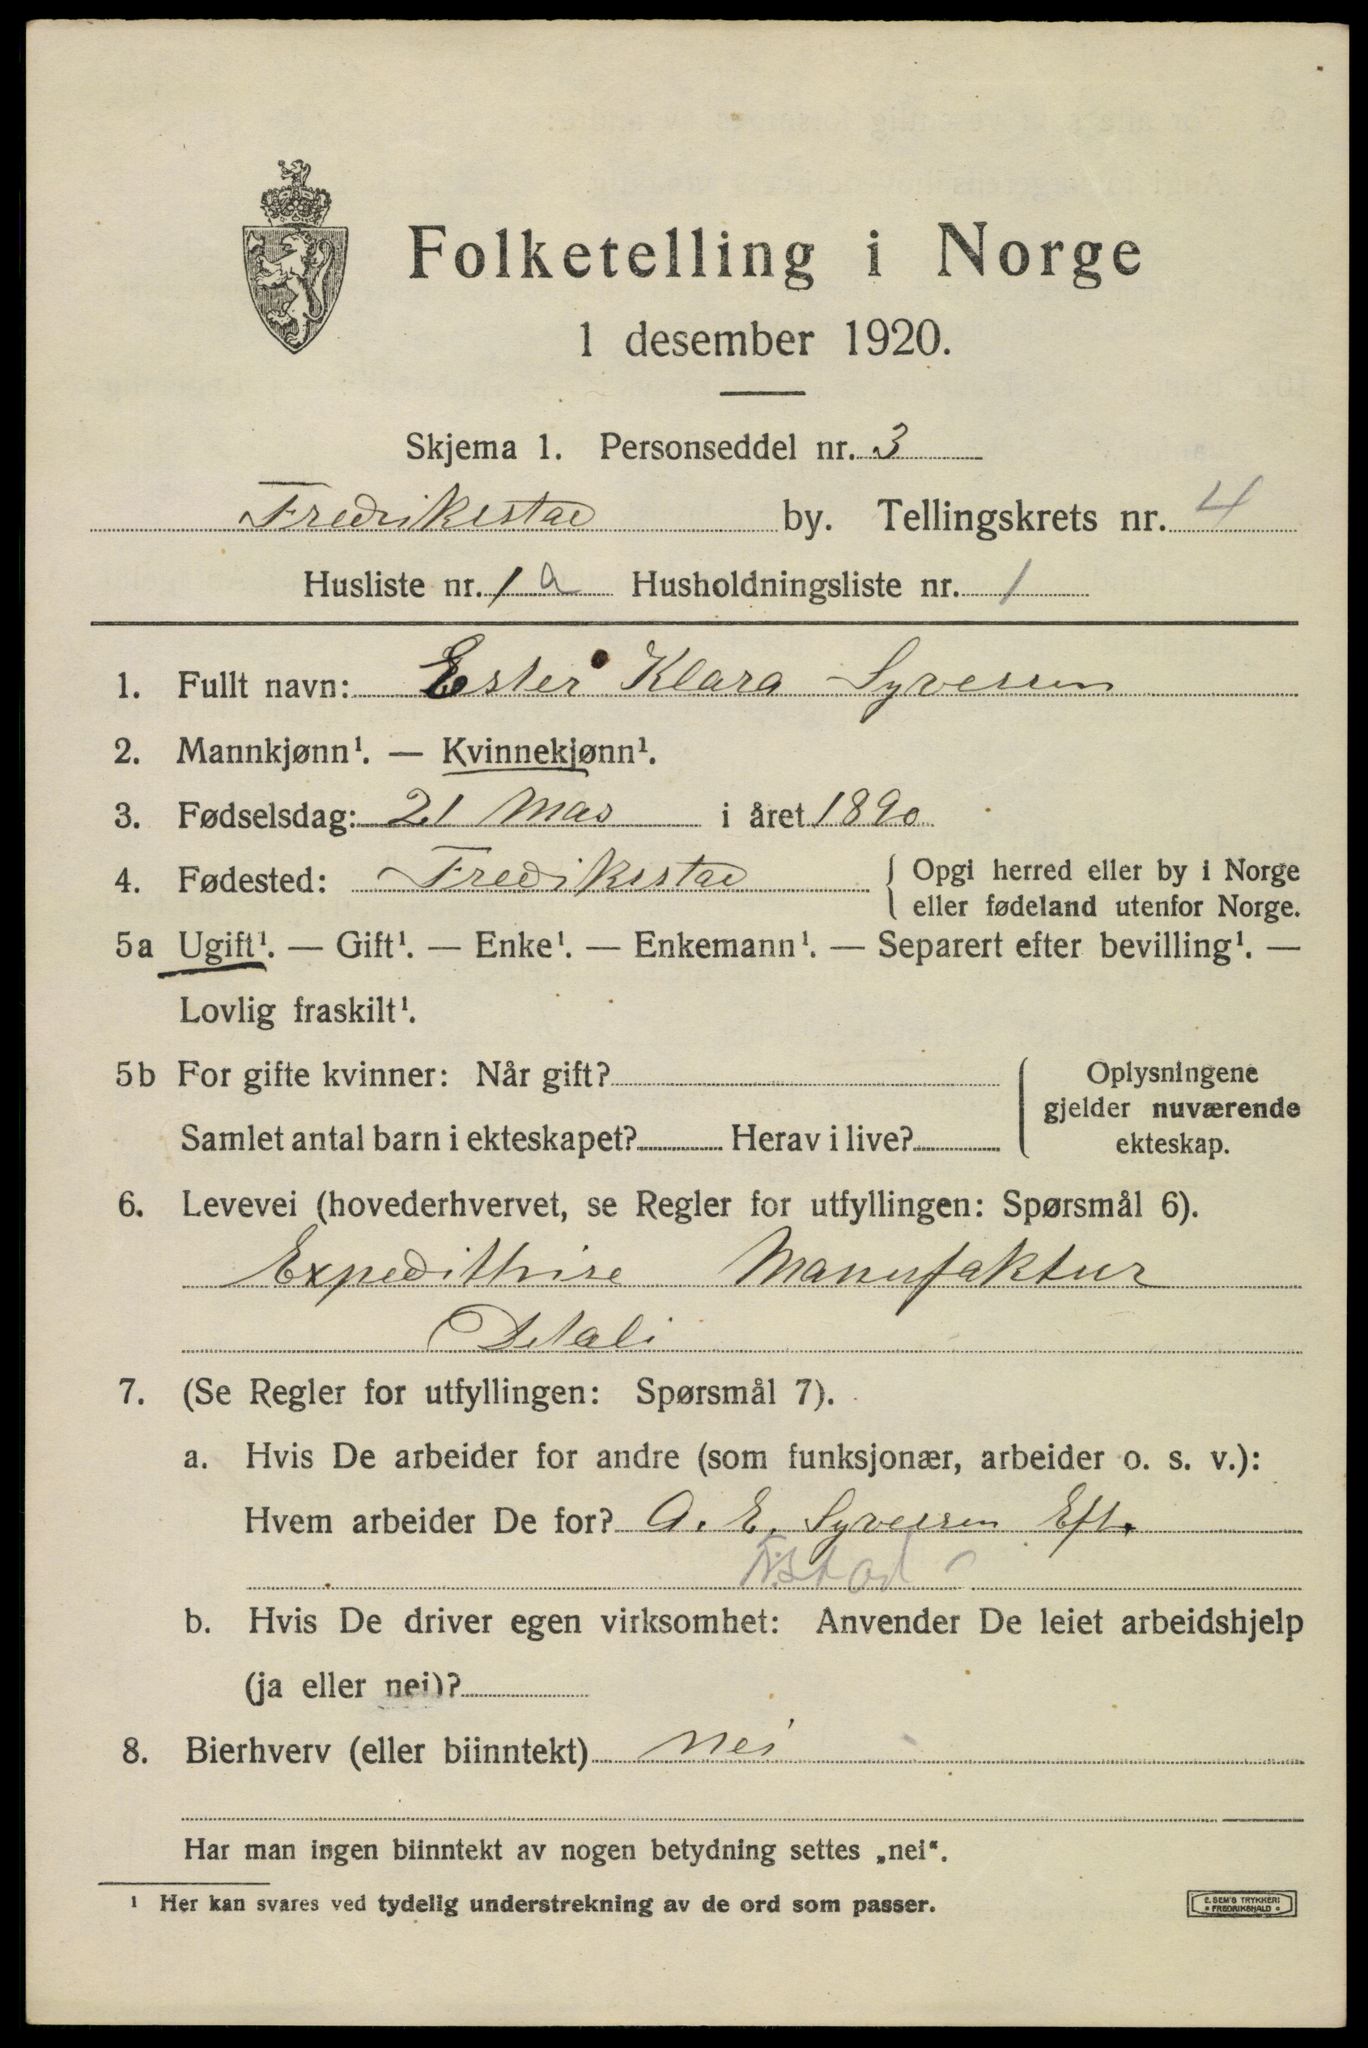 Folketelling i Norge
1 desember 1920.
Skjema 1. Personseddel nr. 3
Fredrikstad by. Tellingskrets nr. 4
Husliste nr. 1 a Husholdningsliste nr. 1
1. Fullt navn: Ester Klara Syversen
2. Mannkjønn¹. — Kvinnekjønn¹.
3. Fødselsdag: 21 Mas i året 1890
4. Fødested: Fredrikstad { Opgi herred eller by i Norge
eller fødeland utenfor Norge.
5a Ugift¹. — Gift¹. — Enke¹. — Enkemann¹. — Separert efter bevilling¹. —
Lovlig fraskilt¹.
5b For gifte kvinner: Når gift? { Oplysningene
gjelder nuværende
Samlet antal barn i ekteskapet? Herav i live?
ekteskap.
6. Levevei (hovederhvervet, se Regler for utfyllingen: Spørsmål 6).
Manufaktur
7. (Se Regler for utfyllingen: Spørsmål 7).
a. Hvis De arbeider for andre (som funksjonær, arbeider o. s. v.):
Hvem arbeider De for? A. E. Syversen Eft.
F.stad
b. Hvis De driver egen virksomhet: Anvender De leiet arbeidshjelp
(ja eller nei)?
8. Bierhverv (eller biinntekt) Nei
Har man ingen biinntekt av nogen betydning settes „nei“.
¹ Her kan svares ved tydelig understrekning av de ord som passer.
E. SEM'S TRYKKERI
• FREDRIKSHALD •